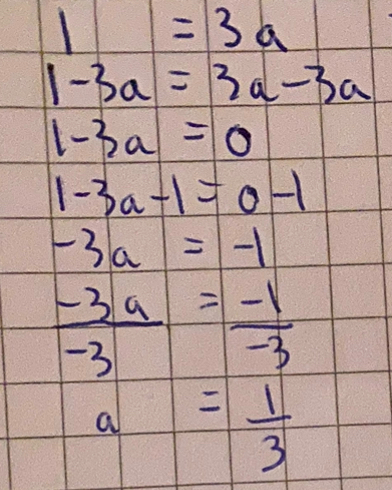 1 = 3a
1-3a = 3a-3a
1-3a = 0
1-3a-1 = 0-1
-3a = -1
-3a/-3 = -1/-3
a = 1/3